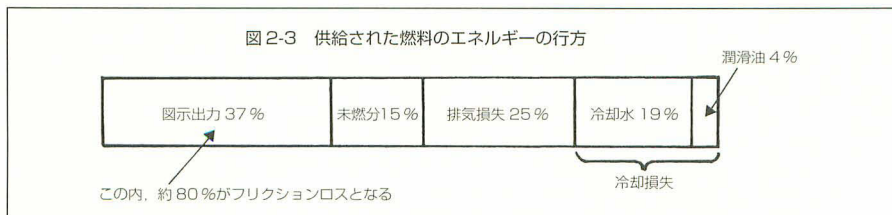 図2-3 供給された燃料のエネルギーの行方
潤滑油4%
図示出力37%
未燃分15%
排気損失25%
冷却水19%
冷却損失
この内，約80%がフリクションロスとなる